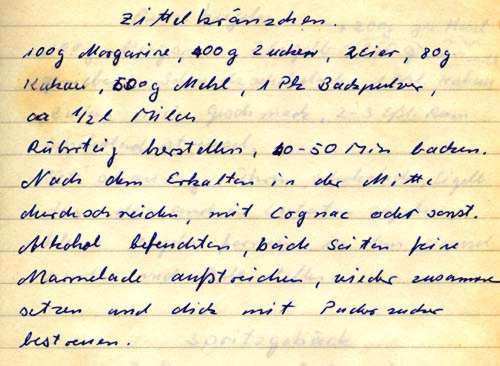 Zittelkränzchen.
100g Margarine, 400g Zucker, 2 Eier, 80g
Kakau, 500g Mehl, 1 Pk Backpulver,
ca 1/2 l Milch
Rührteig herstellen, 40-50 Min backen.
Nach dem Erkalten in der Mitte
durchschneiden, mit Cognac oder sonst.
Alkohol befeuchten, beide Seiten feine
Marmelade aufstreichen, wieder zusammen
setzen und dick mit Puderzucker
bestreuen.